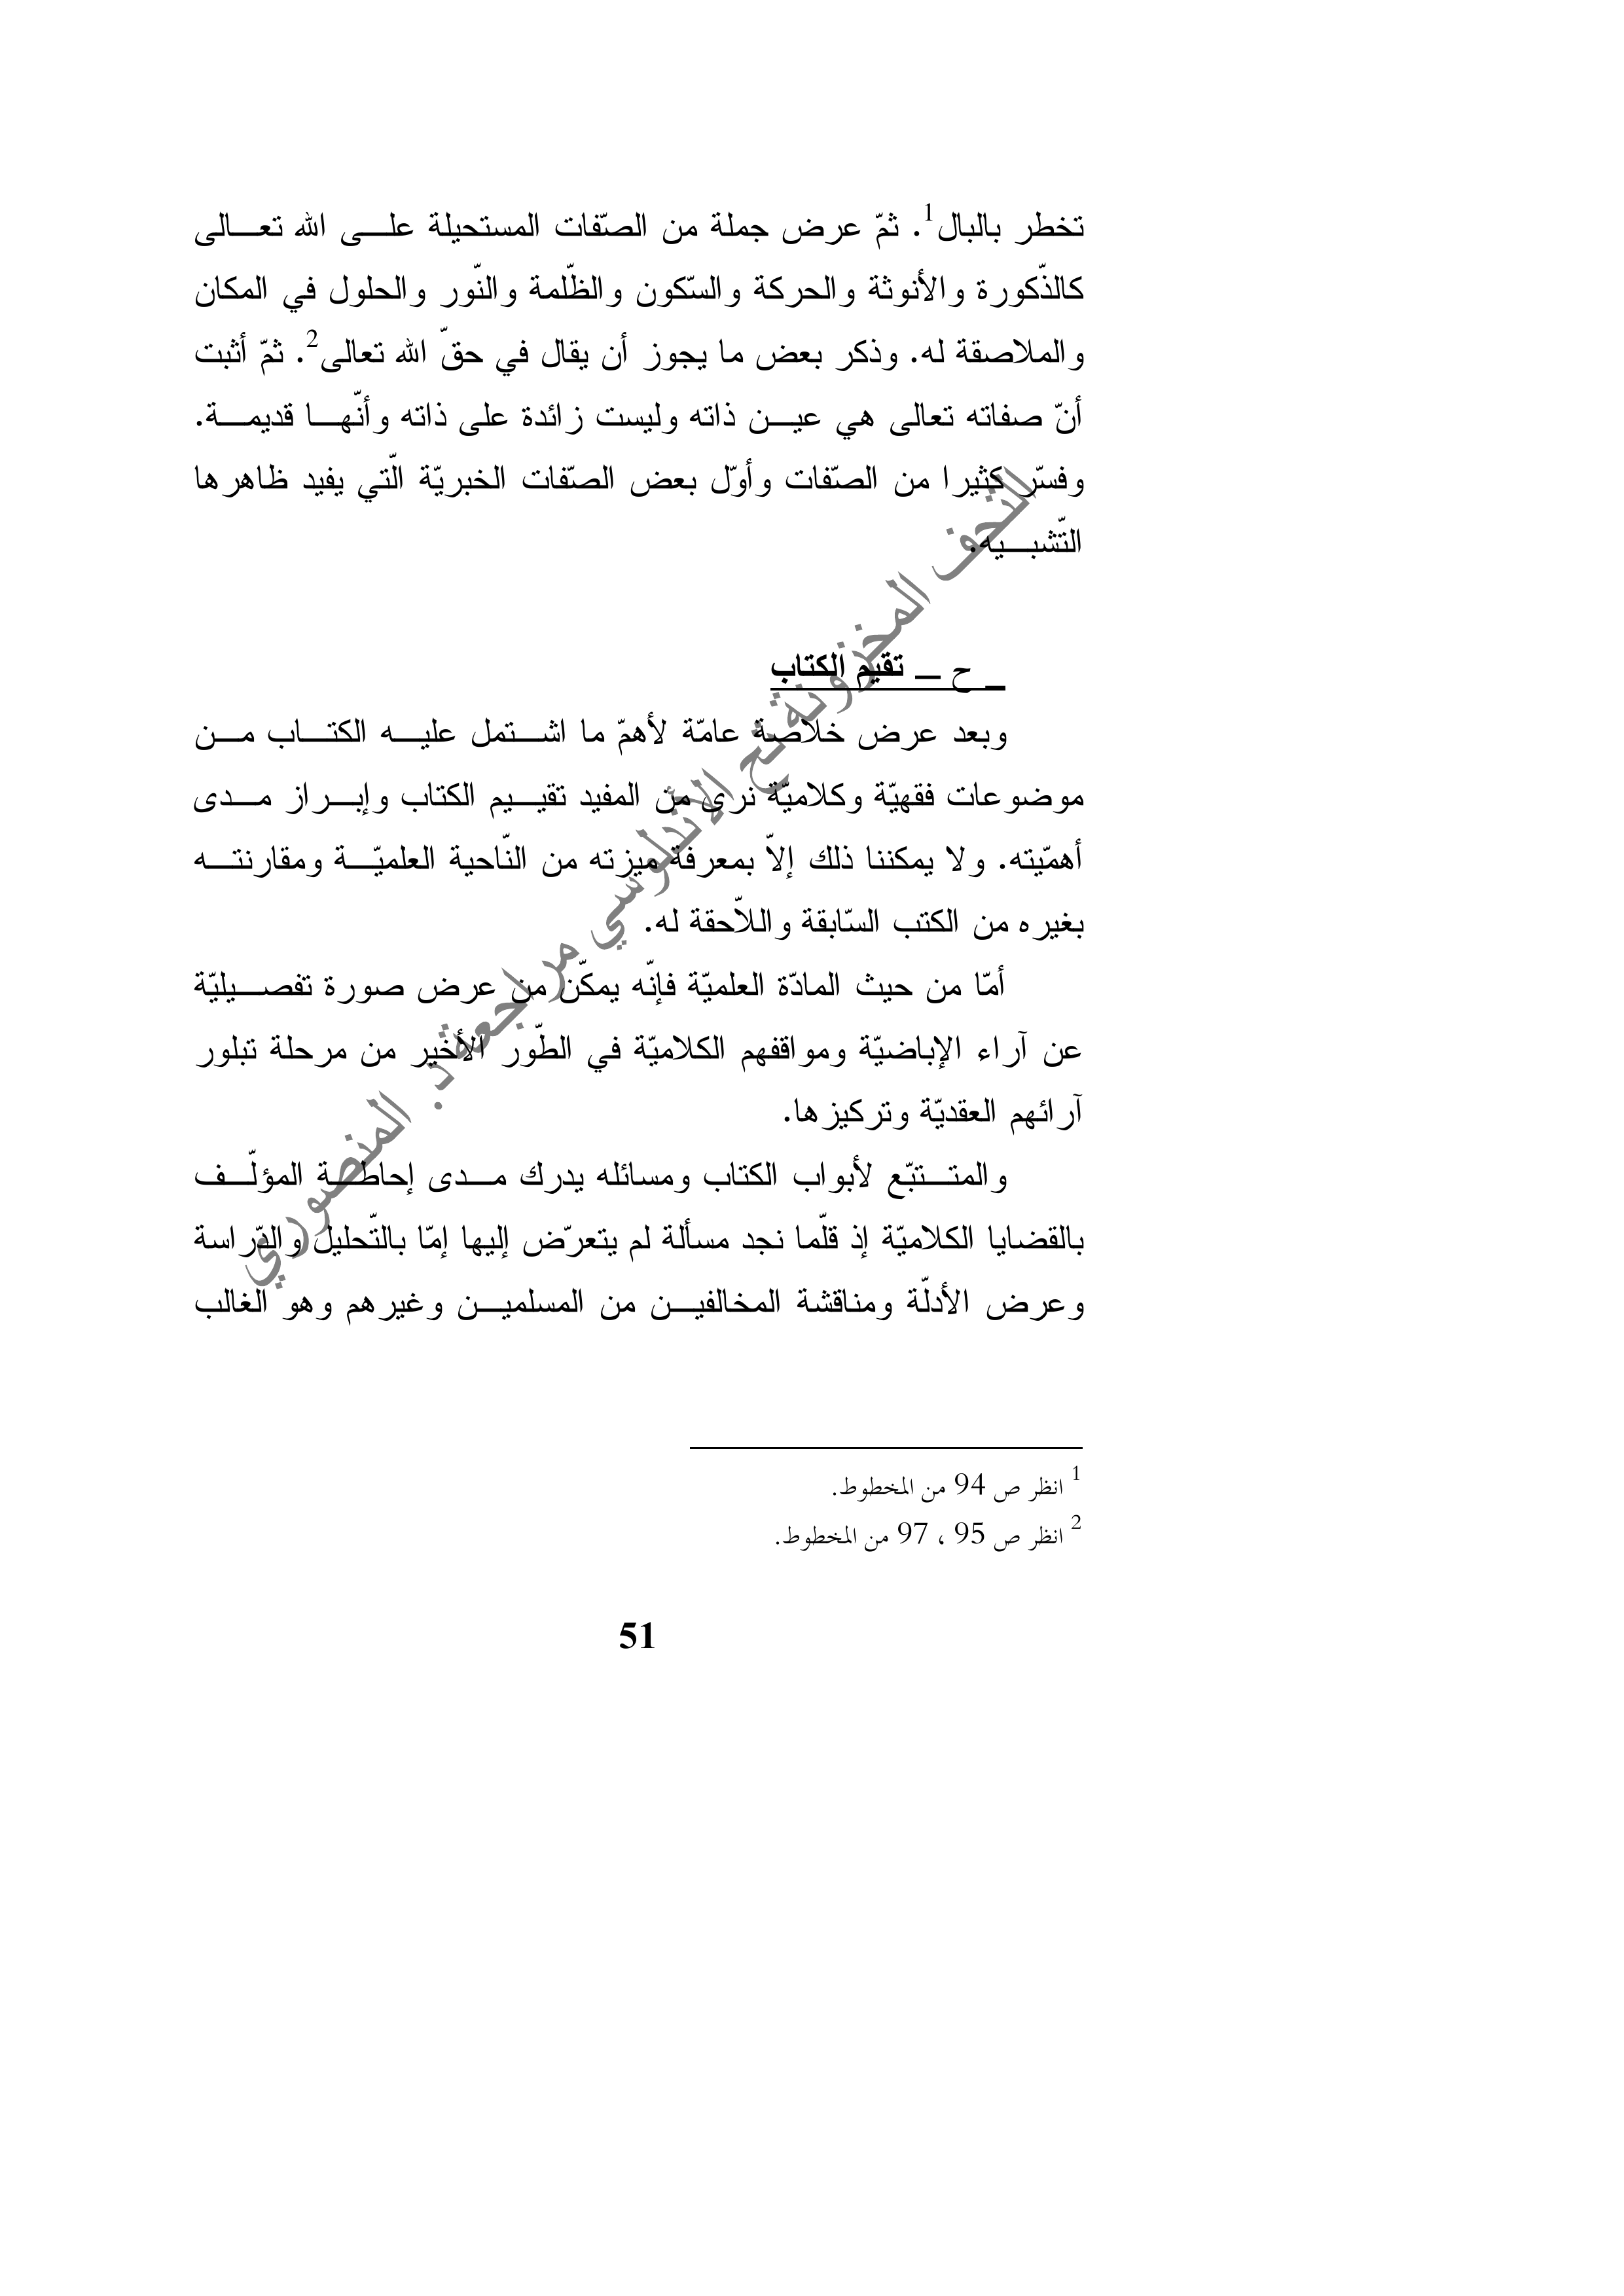 تخطر بالبال1. ثمّ عرض جملة من الصّفات المستحيلة على الله تعالى
كالذّكورة والأنوثة والحركة والسّكون والظّلمة والنّور والحلول في المكان
والملاصقة له. وذكر بعض ما يجوز أن يقال في حقّ الله تعالى2. ثمّ أثبت
أنّ صفاته تعالى هي عين ذاته وليست زائدة على ذاته وأنّها قديمة.
وفسّر كثيرا من الصّفات وأوّل بعض الصّفات الخبريّة الّتي يفيد ظاهرها
التّشبيه.
_ ح _ تقيم الكتاب
وبعد عرض خلاصة عامّة لأهمّ ما اشتمل عليه الكتاب من
موضوعات فقهيّة وكلاميّة نرى من المفيد تقييم الكتاب وإبراز مدى
أهمّيته. ولا يمكننا ذلك إلاّ بمعرفة ميزته من النّاحية العلميّة ومقارنته
بغيره من الكتب السّابقة واللاّحقة له.
أمّا من حيث المادّة العلميّة فإنّه يمكّن من عرض صورة تفصيليّة
عن آراء الإباضيّة ومواقفهم الكلاميّة في الطّور الأخير من مرحلة تبلور
آرائهم العقديّة وتركيزها.
والمتتبّع لأبواب الكتاب ومسائله يدرك مدى إحاطة المؤلّف
بالقضايا الكلاميّة إذ قلّما نجد مسألة لم يتعرّض إليها إمّا بالتّحليل والدّراسة
وعرض الأدلّة ومناقشة المخالفين من المسلمين وغيرهم وهو الغالب
1 انظر ص 94 من المخطوط.
2 انظر ص 95 ، 97 من المخطوط.
51
التحف المخزونة تح الأندلوسي مراجعة د. المنصوري